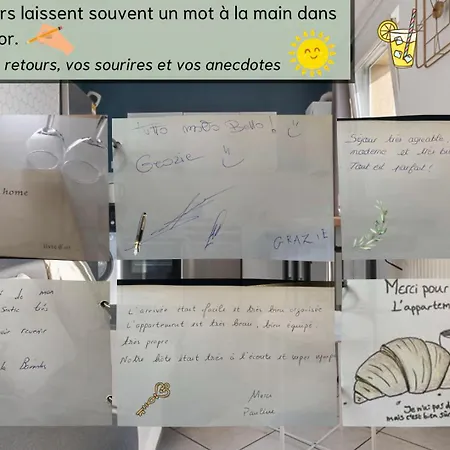 rs laissent souvent un mot à la main dans
or.
retours, vos sourires et vos anecdotes
home
livre d'or
tutto molto Bello!
Grazie
GRAZIE
Séjour très agréable,
moderne et très bi
Tout est parfait!
de mon
très
revenir
L'arrivée était facile et très bien organisée
L'appartement est très beau, bien équipé
très propre
Notre hôte était très à l'écoute et super
Merci
Pauline
Merci pour
L'apparteme
Je n'ai pas d
mais c'est bien